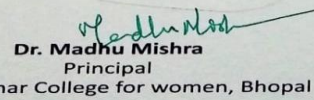 Madhu Mish
Dr. Madhu Mishra
Principal
nar College for women, Bhopal